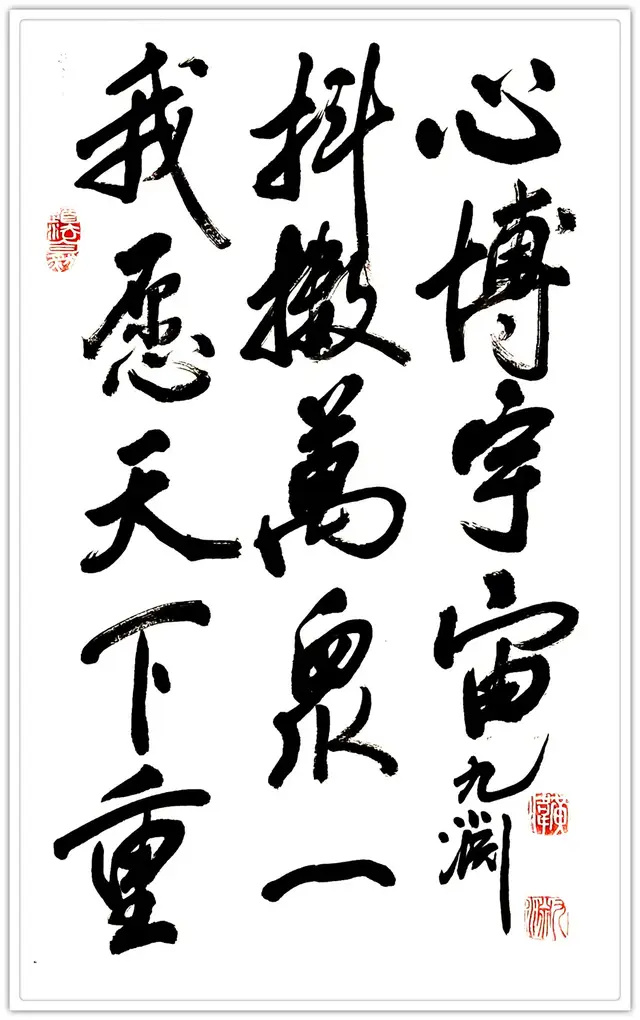 我愿天下重
抖擞萬衆一
心博宇宙
九淵